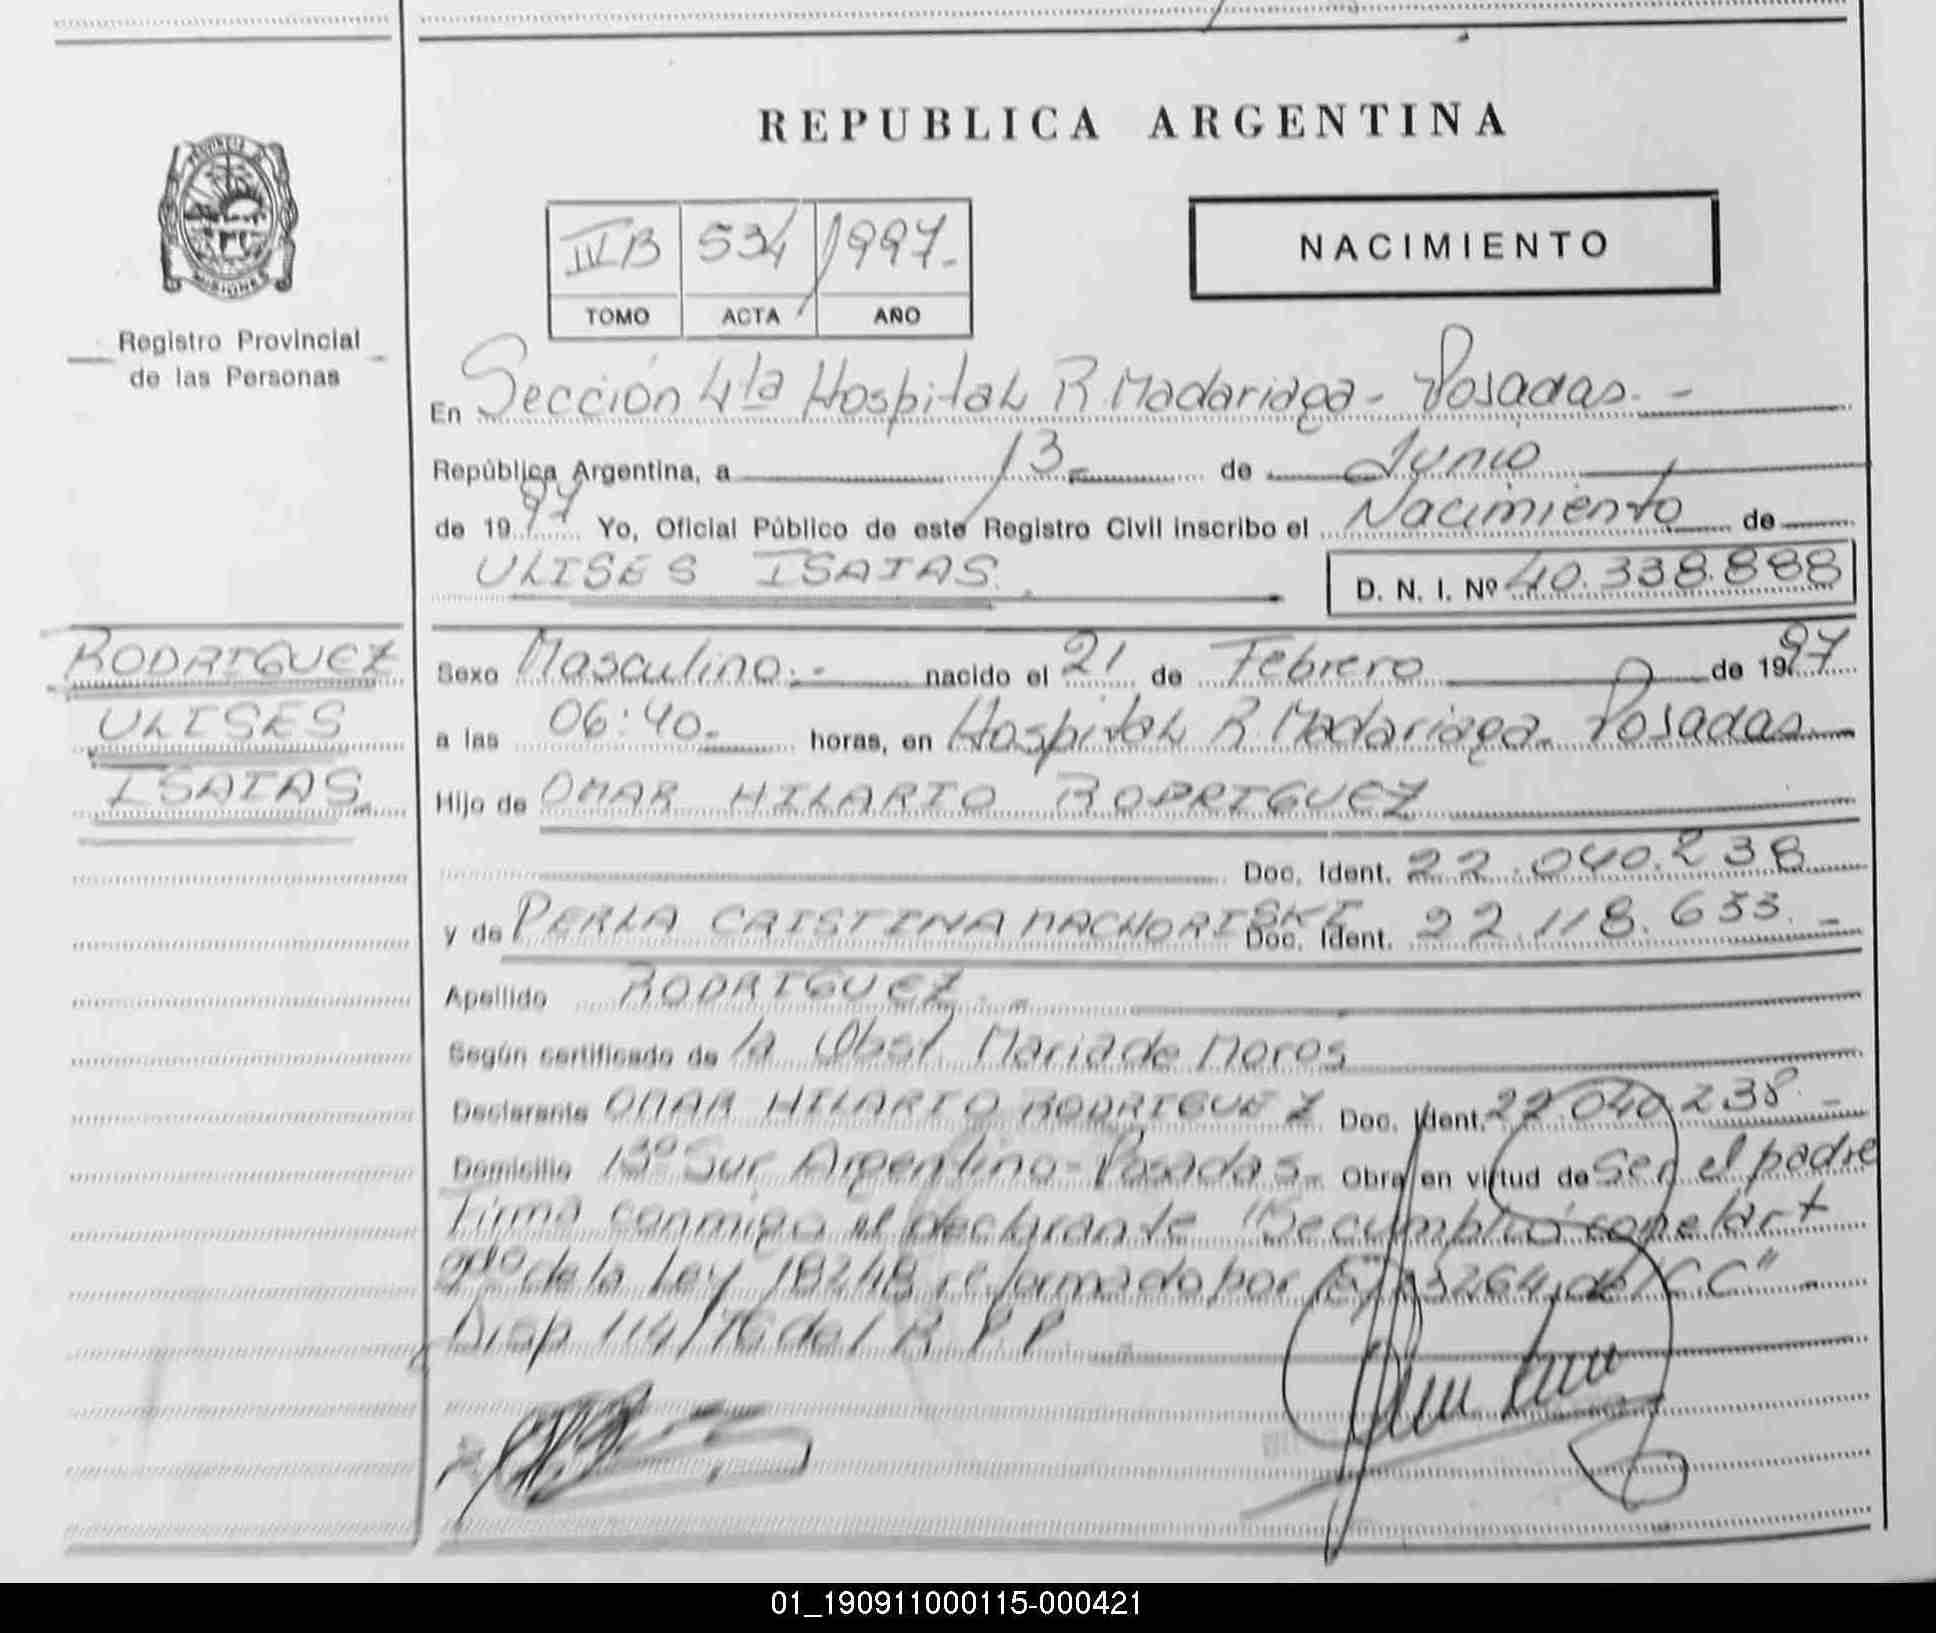 REPUBLICA ARGENTINA
PROVINCIA DE
MISIONES
Registro Provincial
de las Personas
IV B 534 1997.-
TOMO ACTA AÑO
NACIMIENTO
En Sección 4ta Hospital R. Madariaga - Posadas. -
República Argentina, a 13.- de Junio
de 1997 Yo, Oficial Público de este Registro Civil inscribo el Nacimiento de
ULISES ISAIAS. D. N. I. Nº 40.338.888
RODRIGUEZ
ULISES
ISAIAS.
Sexo Masculino.- nacido el 21 de Febrero de 1997
a las 06:40.- horas, en Hospital R. Madariaga - Posadas.
Hijo de OMAR HILARIO RODRIGUEZ
Doc. Ident. 22.040.238
y de PERLA CRISTINA MACHORISKI Doc. Ident. 22.118.633. -
Apellido RODRIGUEZ. -
Según certificado de la Obst. Maria de Moros
Declarante OMAR HILARIO RODRIGUEZ Doc. Ident. 22.040.238. -
Domicilio Bº Sur Argentino - Posadas. Obra en virtud de Ser el padre
Firma conmigo el declarante "Se cumplió con el art
de la Ley 18248 reformado por 23264 del C.C" -
Disp 114/76 del R. P. P.
01_190911000115-000421